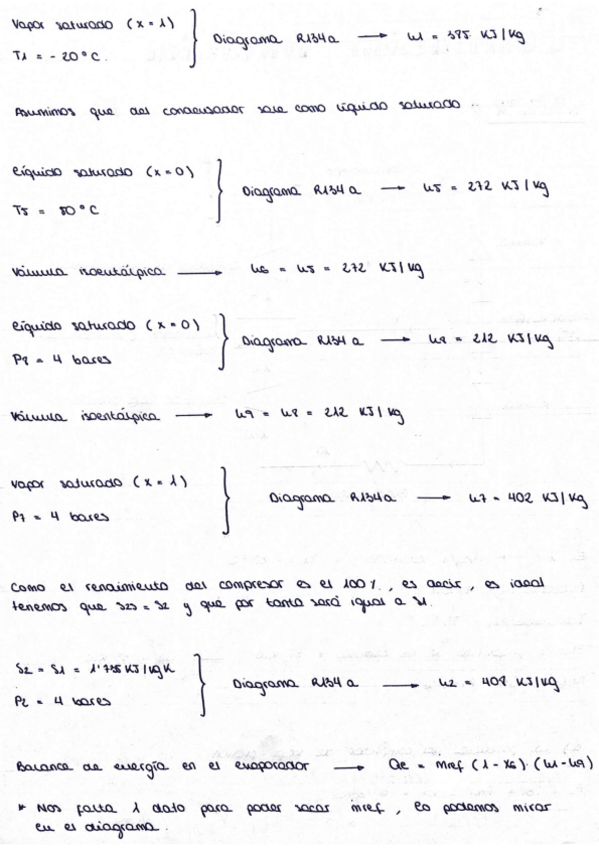 Vapor saturado (x = 1)
T1 = - 20°C.
Diagrama R134a → h1 = 385 KJ/kg
Asumimos que del condensador sale como líquido saturado.
Líquido saturado (x = 0)
T5 = 50°C
Diagrama R134a → h5 = 272 KJ/kg
Válvula isoentálpica → h6 = h5 = 272 KJ/kg
Líquido saturado (x = 0)
P8 = 4 bares
Diagrama R134a → h8 = 212 KJ/kg
Válvula isoentálpica → h9 = h8 = 212 KJ/kg
Vapor saturado (x = 1)
P7 = 4 bares
Diagrama R134a → h7 = 402 KJ/kg
Como el rendimiento del compresor es el 100%, es decir, es ideal
tenemos que s2s = s2 y que por tanto será igual a s1.
S2 = S1 = 1'735 KJ/kgK
P2 = 4 bares
Diagrama R134a → h2 = 408 KJ/kg
Balance de energía en el evaporador → Qe = mref (1 - x6) · (h1 - h9)
* Nos falta 1 dato para poder sacar ṁref, lo podemos mirar
en el diagrama.